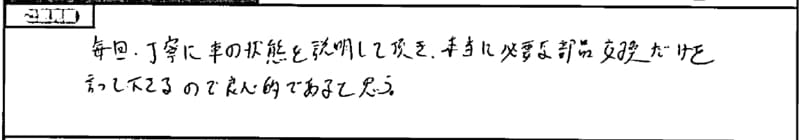 毎回、丁寧に車の状態を説明して頂き、本当に必要な部品交換だけを
言って下さるので良心的であると思う。